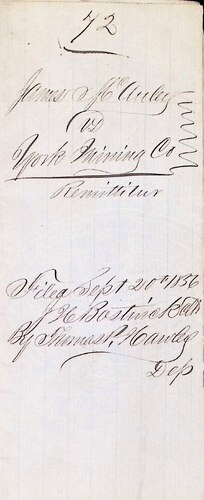 72
James McAuley
vs
York Mining Co
Remittitur
Filed Sept 20th 1886
J H Bostwick Clk
By Thomas P. Hawley
Dep